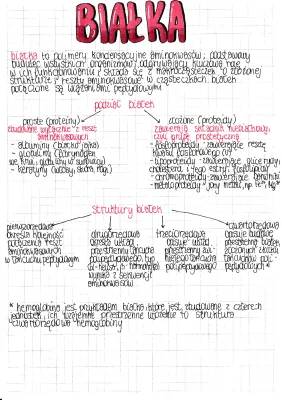 BIAŁKA
białka to polimery kondensacyjne aminokwasów; podstawowy
budulec wszystkich organizmów, odgrywający kluczową rolę
w ich funkcjonowaniu; składa się z makrocząsteczek o złożonej
strukturze; reszty aminokwasowe w cząsteczkach białek
połączone są wiązaniami peptydowymi
podział białek
proste (proteiny)
zbudowane wyłącznie z reszt
aminokwasowych
- albuminy (białko jajka)
- globuliny (fibrynogen
we krwi, globuliny w surowicy)
- keratyny (włosy, skóra, róg)
złożone (proteidy)
zawierają składnik niebiałkowy,
czyli grupę prostetyczną
- fosfoproteidy - zawierające resztę
kwasu fosforowego (V)
- lipoproteidy - zawierające glicerydy,
cholesterol i jego estry, fosfolipidy
- chromoproteidy - zawierające barwniki
- metaloproteidy - jony metali, np. Fe
struktury białek
pierwszorzędowa
określa kolejność
połączenia reszt
aminokwasowych
w łańcuchu peptydowym
drugorzędowa
opisuje układ
przestrzenny łańcucha
polipeptydowego, typ
wynika z sekwencji
aminokwasów
trzeciorzędowa
opisuje układ
przestrzenny
łańcucha
polipeptydowego
czwartorzędowa
opisuje budowę
przestrzenną białek
złożonych z kilku
łańcuchów poli-
peptydowych*
* hemoglobina jest przykładem białka, które jest zbudowane z czterech
jednostek, ich wzajemne przestrzenne ułożenie to struktura
czwartorzędowa hemoglobiny